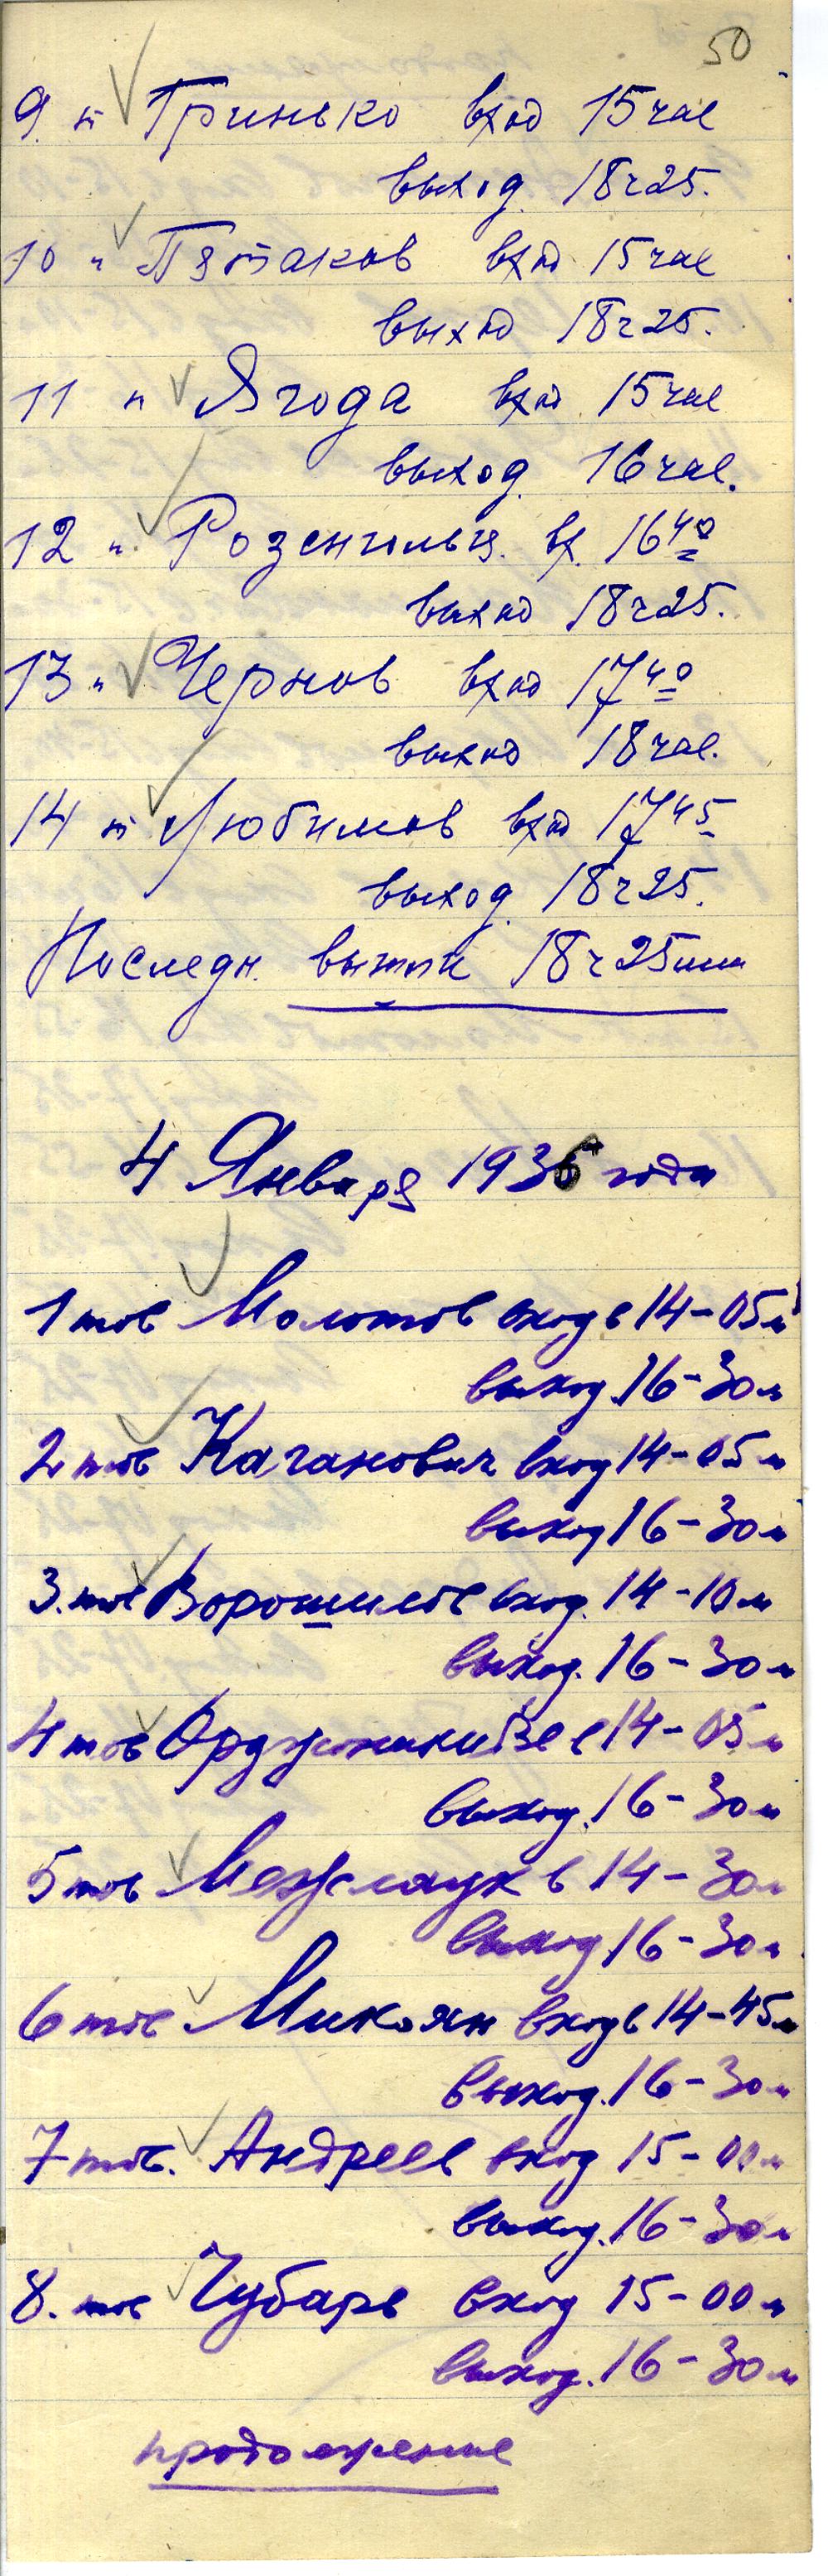 50
9. т Гринько вход 15 час
выход. 18 ч 25.
10 " Пятаков вход 15 час
выход 18 ч 25.
11 " Ягода вход. 15 час
выход. 16 час.
12 " Розенгольц. вх. 16 40
выход 18 ч 25.
13 " Чернов вход 17 40
выход 18 час.
14 т Любимов вход 17 45
выход. 18 ч 25.
Последн. вышли 18 ч 25 мин
4 Января 1936 года
1 тов Молотов вход в 14-05 м
выход. 16-30 м
2 тов Каганович вход 14-05 м
выход 16-30 м
3. тов Ворошилов вход. 14-10 м
выход. 16-30 м
4 тов Орджоникидзе в 14-05 м
выход. 16-30 м
5 тов Межлаук в 14-30 м
выход 16-30 м
6 тов Микоян вход в 14-45 м
выход. 16-30 м
7 тов. Андреев вход 15-00 м
выход. 16-30 м
8. тов Чубарь вход 15-00 м
выход. 16-30 м
продолжение